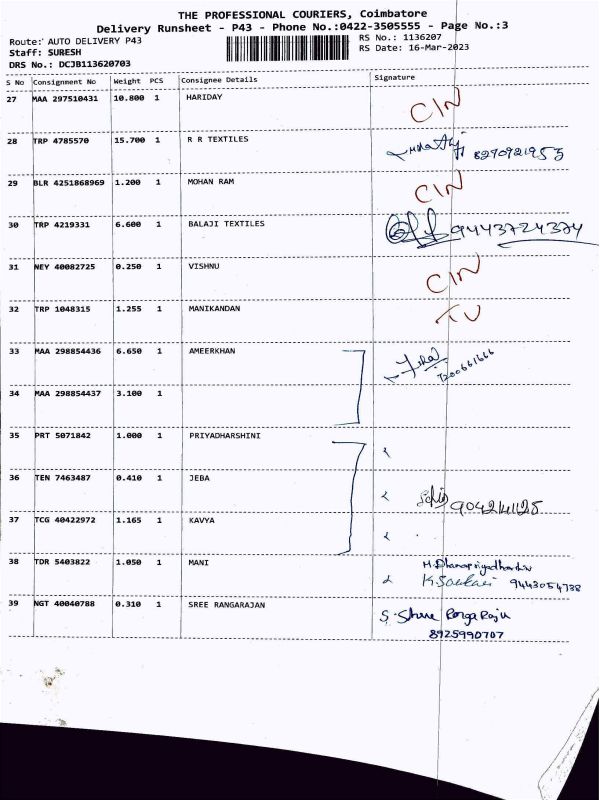 THE PROFESSIONAL COURIERS, Coimbatore
Delivery Runsheet - P43 - Phone No.:0422-3505555 - Page No.:3
Route: AUTO DELIVERY P43 RS No.: 1136207
Staff: SURESH RS Date: 16-Mar-2023
DRS No.: DCJB113620703
S No Consignment No Weight PCS Consignee Details Signature
27 MAA 297510431 10.800 1 HARIDAY CIN
28 TRP 4785570 15.700 1 R R TEXTILES 8270921953
29 BLR 4251868969 1.200 1 MOHAN RAM CIN
30 TRP 4219331 6.600 1 BALAJI TEXTILES 9443724374
31 NEY 40082725 0.250 1 VISHNU CIN
32 TRP 1048315 1.255 1 MANIKANDAN TU
33 MAA 298854436 6.650 1 AMEERKHAN 7200661666
34 MAA 298854437 3.100 1
35 PRT 5071842 1.000 1 PRIYADHARSHINI
36 TEN 7463487 0.410 1 JEBA
37 TCG 40422972 1.165 1 KAVYA
38 TDR 5403822 1.050 1 MANI 9443054738
39 NGT 40040788 0.310 1 SREE RANGARAJAN S. Shree Ranga Raju
8925990707